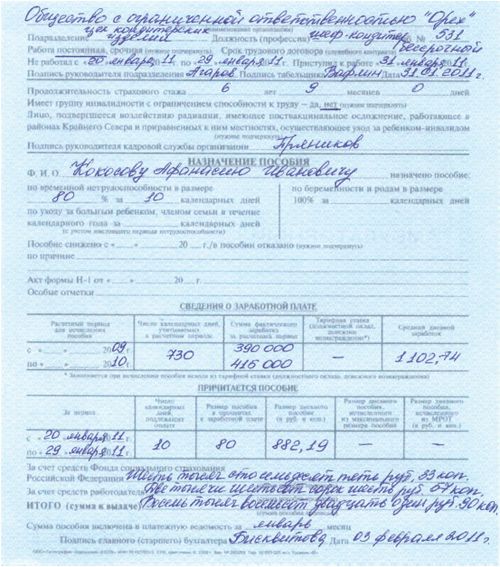 Общество с ограниченной ответственностью "Орех"
(наименование организации)
Подразделение цех кондитерских изделий Должность (профессия) шеф-кондитер № 531
Работа постоянная, срочная (нужное подчеркнуть) Срок трудового договора (служебного контракта) бессрочный
Не работал с «20» января 2011 г. по «29» января 2011 г. Приступил к работе «31» января 2011 г.
Подпись руководителя подразделения Агаров Подпись табельщика Вафлин Дата 31.01.2011 г.
Продолжительность страхового стажа 6 лет 9 месяцев 0 дней
Имеет группу инвалидности с ограничением способности к труду – да, нет (нужное подчеркнуть)
Лицо, подвергшееся воздействию радиации, имеющее поствакцинальное осложнение, работающее в
районах Крайнего Севера и приравненных к ним местностях, осуществляющее уход за ребенком-инвалидом
(нужное подчеркнуть)
Подпись руководителя кадровой службы организации Пряников
НАЗНАЧЕНИЕ ПОСОБИЯ
Ф. И. О. Кокосову Афанасию Ивановичу назначено пособие:
по временной нетрудоспособности в размере по беременности и родам в размере
80 % за 10 календарных дней 100% за календарных дней
по уходу за больным ребенком, членом семьи в течение
календарного года за календарных дней
(с учетом настоящего периода нетрудоспособности)
Пособие снижено с «__» 20 г./в пособии отказано (нужное подчеркнуть)
по причине
Акт формы Н-1 от «__» 20 г.
Особые отметки
СВЕДЕНИЯ О ЗАРАБОТНОЙ ПЛАТЕ
Расчетный период для исчисления пособия Число календарных дней, учитываемых в расчетном периоде Сумма фактического заработка за расчетный период Тарифная ставка (должностной оклад, денежное вознаграждение)* Средний дневной заработок
с «__» 2009 г. 730 390 000 — 1102,74
по «__» 2010 г. 415 000
* Заполняется при исчислении пособия исходя из тарифной ставки (должностного оклада, денежного вознаграждения)
ПРИЧИТАЕТСЯ ПОСОБИЕ
За период Число календарных дней, подлежащих оплате Размер пособия в процентах к заработной плате Размер дневного пособия (в руб. и коп.) Размер дневного пособия, исчисленного из максимального размера пособия Размер дневного пособия, исчисленного из МРОТ (в руб. и коп.)
с «20» января 2011 г. 10 80 882,19 — —
по «29» января 2011 г.
За счет средств Фонда социального страхования
Российской Федерации Шесть тысяч сто семьдесят пять руб. 33 коп.
За счет средств работодателя Две тысячи шестьсот сорок шесть руб. 57 коп.
ИТОГО (сумма к выдаче) Восемь тысяч восемьсот двадцать один руб. 90 коп.
Сумма пособия включена в платежную ведомость за январь месяц
Подпись главного (старшего) бухгалтера Бисквитова Дата 03 февраля 2011 г.